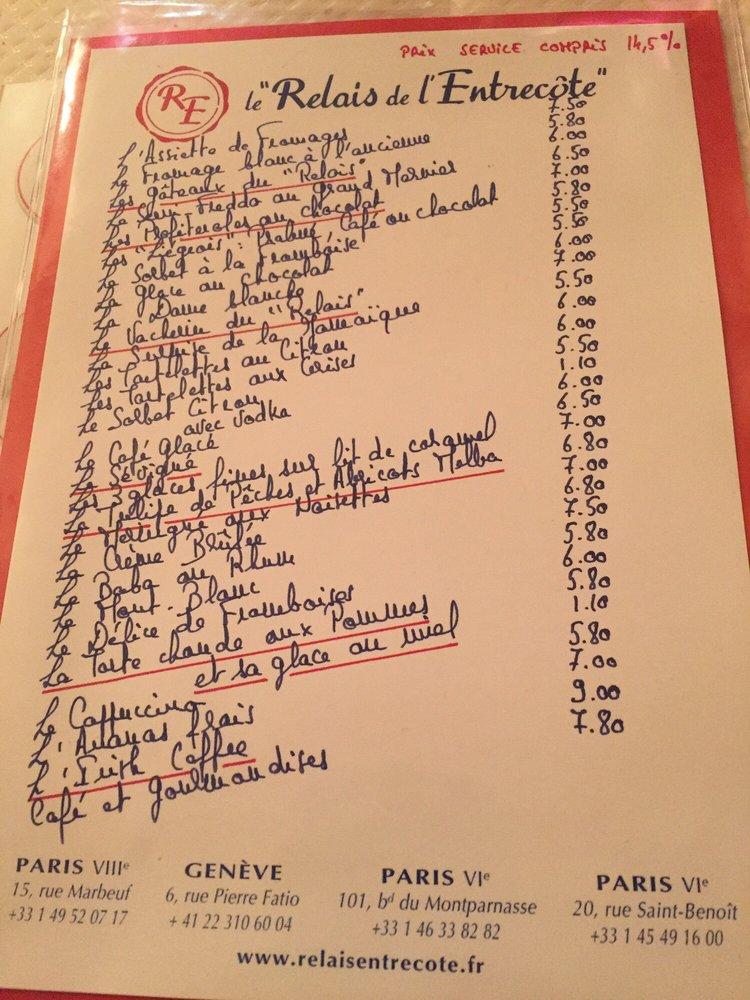 PRIX SERVICE COMPRIS 14,5%
RE
le "Relais de l'Entrecôte"
L'Assiette de Fromages 7.50
Le Fromage blanc à l'ancienne 5.80
Les gâteaux du "Relais" 6.00
Le Semi-Freddo au Grand Marnier 6.50
Les Profiteroles au chocolat 7.00
Les "Liégeois": Praliné, Café ou chocolat 5.80
Le Sorbet à la Framboise 5.50
La glace au Chocolat 5.50
La Dame blanche 6.00
Le Vacherin du "Relais" 7.00
La Surprise de la Jamaïque 5.50
Les Tartelettes au Citron 6.00
Les Tartelettes aux Cerises 6.00
Le Sorbet Citron 5.50
avec Vodka 1.10
Le Café Glacé 6.00
Le Sévigné 6.50
Les 3 glaces fines sur lit de caramel 7.00
La de Pêches et Abricots Melba 6.80
La Meringue aux Noisettes 7.00
La Crème Brûlée 6.80
Le Baba au Rhum 7.50
Le Mont-Blanc 5.80
Le Délice de Framboises 6.00
La Tarte chaude aux Pommes 5.80
et sa glace au miel 1.10
Le Cappuccino 5.80
L'Ananas frais 7.00
L'Irish Coffee 9.00
Café et Gourmandises 7.80
PARIS VIIIe
15, rue Marbeuf
+33 1 49 52 07 17
GENÈVE
6, rue Pierre Fatio
+ 41 22 310 60 04
PARIS VIe
101, bd du Montparnasse
+33 1 46 33 82 82
PARIS VIe
20, rue Saint-Benoît
+33 1 45 49 16 00
www.relaisentrecote.fr